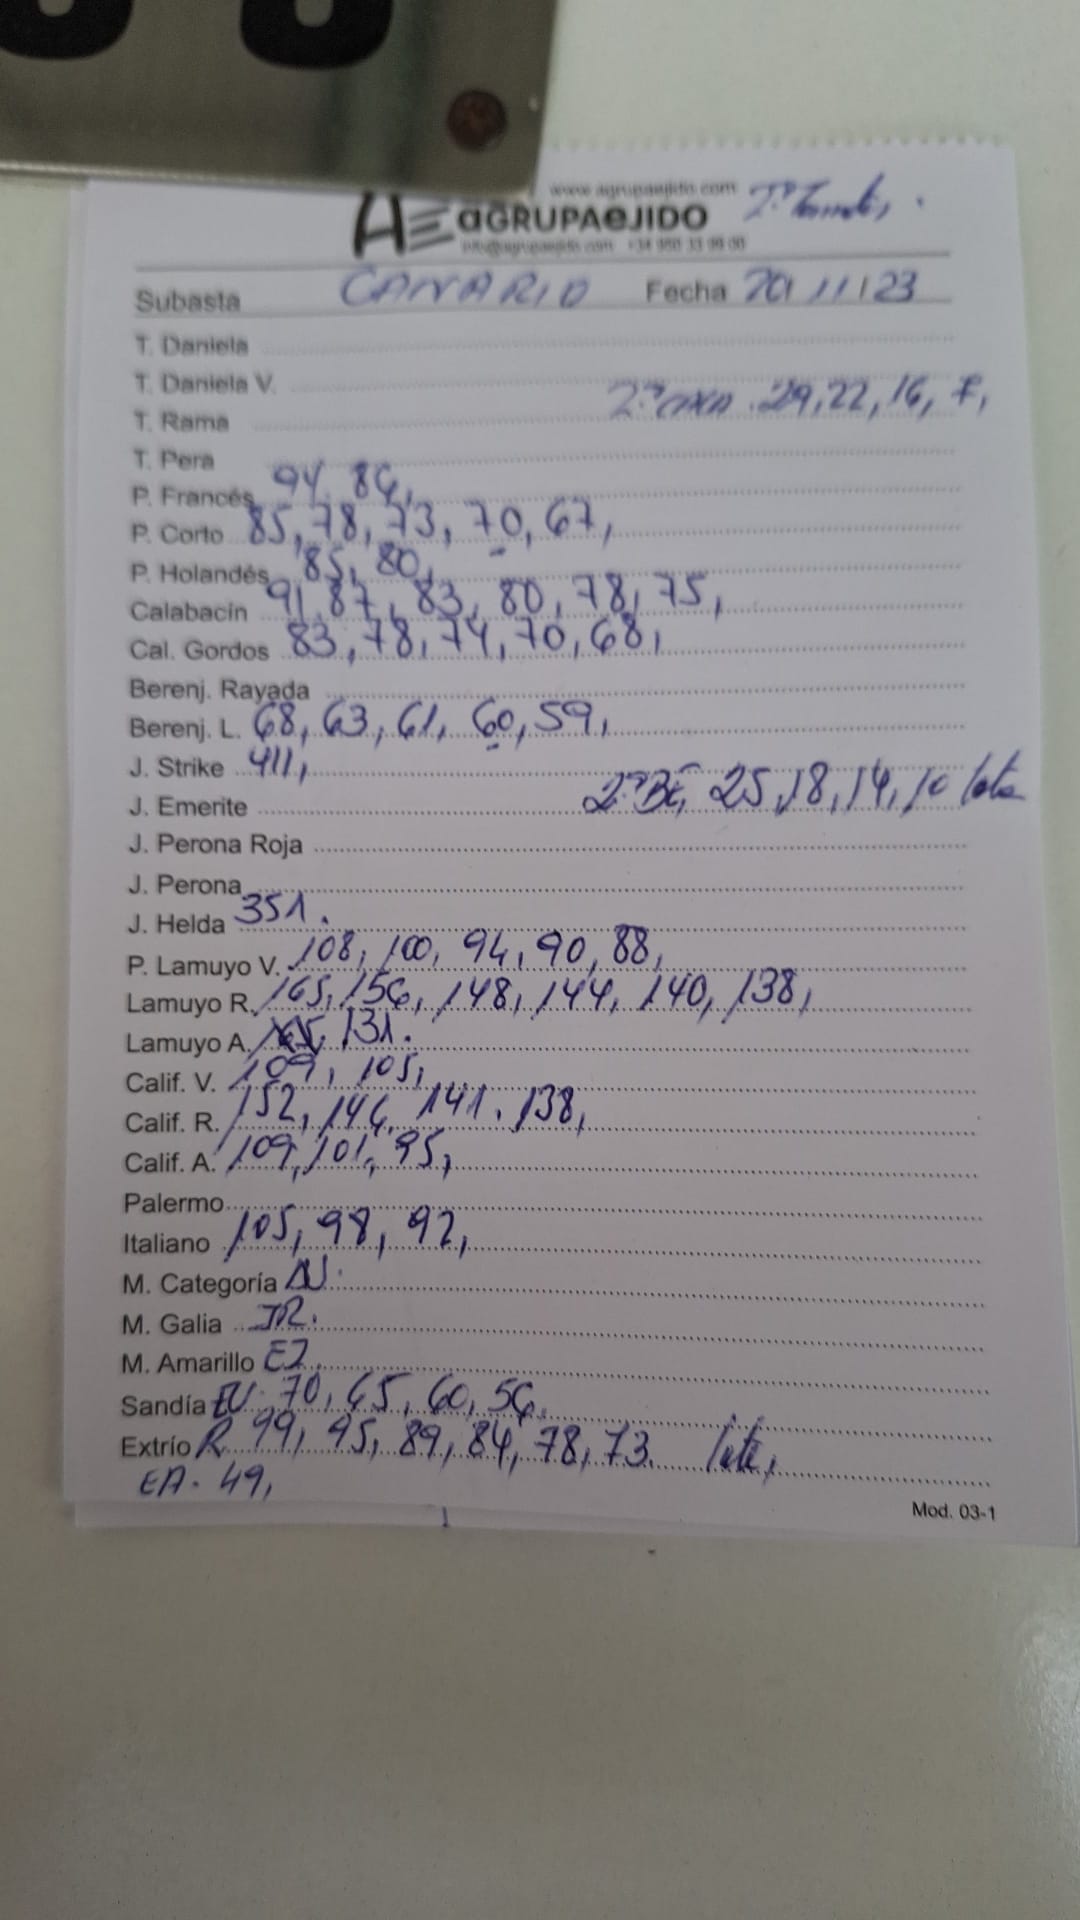 www.agrupaejido.com
AE aGRUPAeJIDO
info@agrupaejido.com +34 950 33 99 00
Subasta CANARIO Fecha 20/11/23
T. Daniela
T. Daniela V.
29, 22, 16, 7,
T. Rama
T. Pera
P. Francés 94, 86,
P. Corto 85, 78, 73, 70, 67,
P. Holandés 85, 80,
Calabacín 91, 87, 83, 80, 78, 75,
Cal. Gordos 83, 78, 74, 70, 68,
Berenj. Rayada
Berenj. L. 68, 63, 61, 60, 59,
J. Strike 411,
J. Emerite 2ª BE, 25, 18, 14, 10 lote
J. Perona Roja
J. Perona
J. Helda 351.
P. Lamuyo V. 108, 100, 94, 90, 88,
Lamuyo R. 165, 156, 148, 144, 140, 138,
Lamuyo A. 131.
Calif. V. 109, 105,
Calif. R. 152, 146, 141. 138,
Calif. A. 109, 101, 95,
Palermo
Italiano 105, 98, 92,
M. Categoría
M. Galia
M. Amarillo
Sandía EV. 70, 65, 60, 56,
Extrío R 99, 95, 89, 84, 78, 73. lote,
EA. 49,
Mod. 03-1